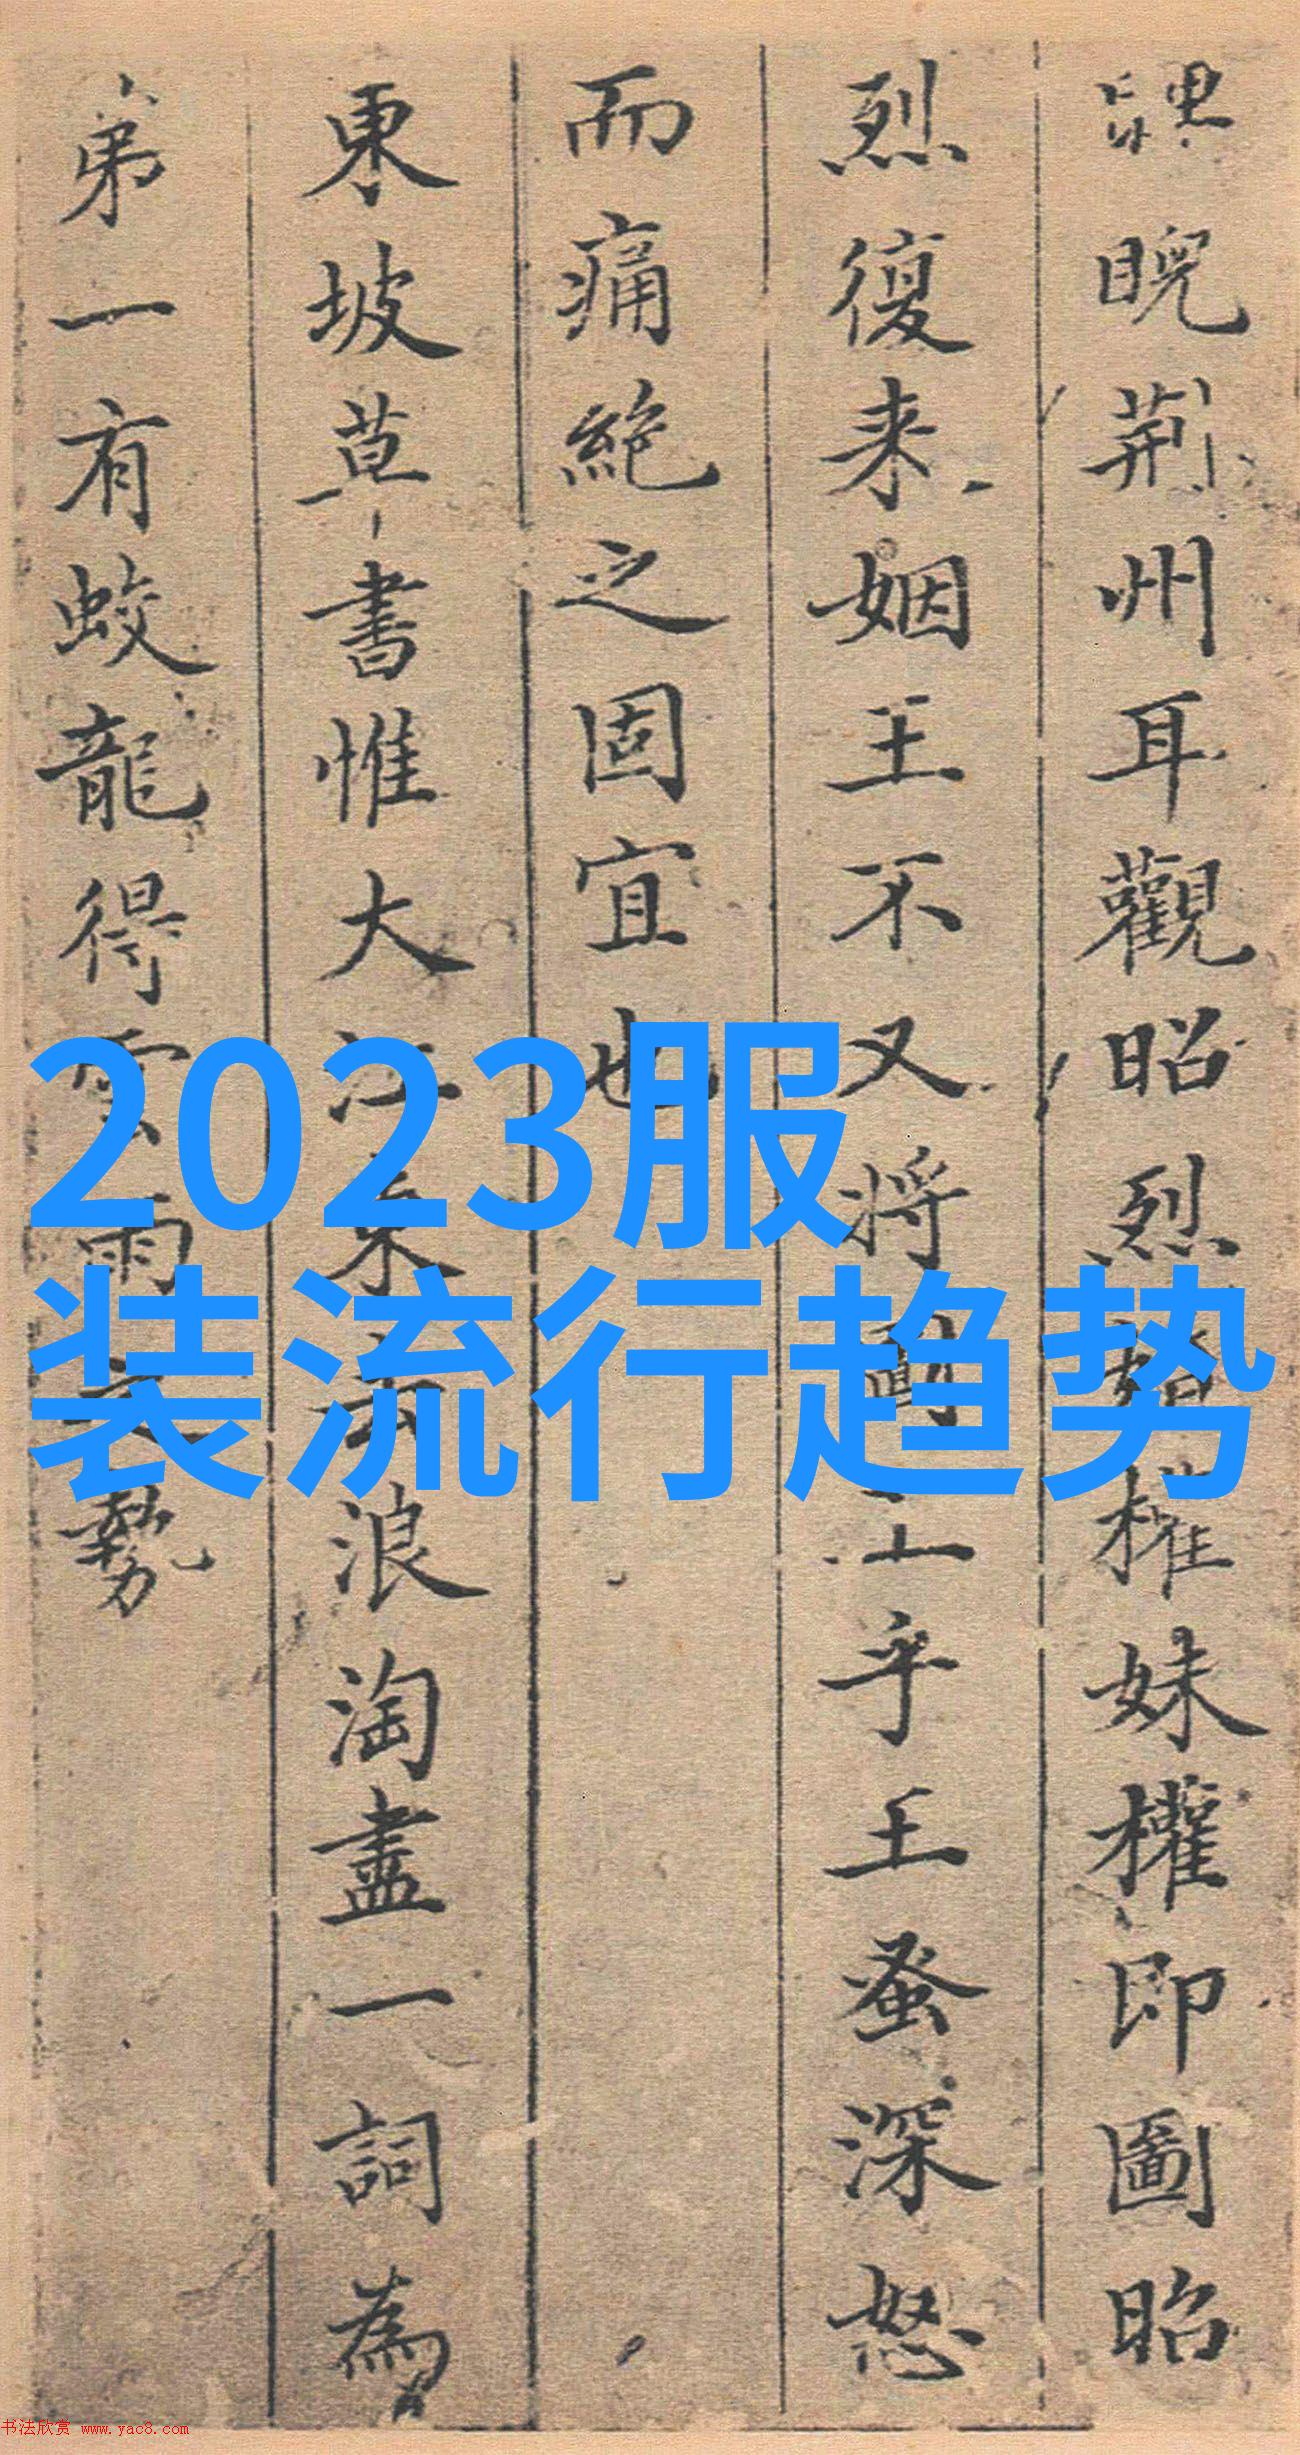 睨荆州耳觀昭烈婚權妹權即圖昭
烈復来姻王不又将圖王乎王蚤深怒
而痛絶之固宜也
東坡草書惟大江東去浪淘盡一詞為
弟一有蛟龍得雲雨之勢
2023服
装流行趋势
书法欣赏 www.yac8.com